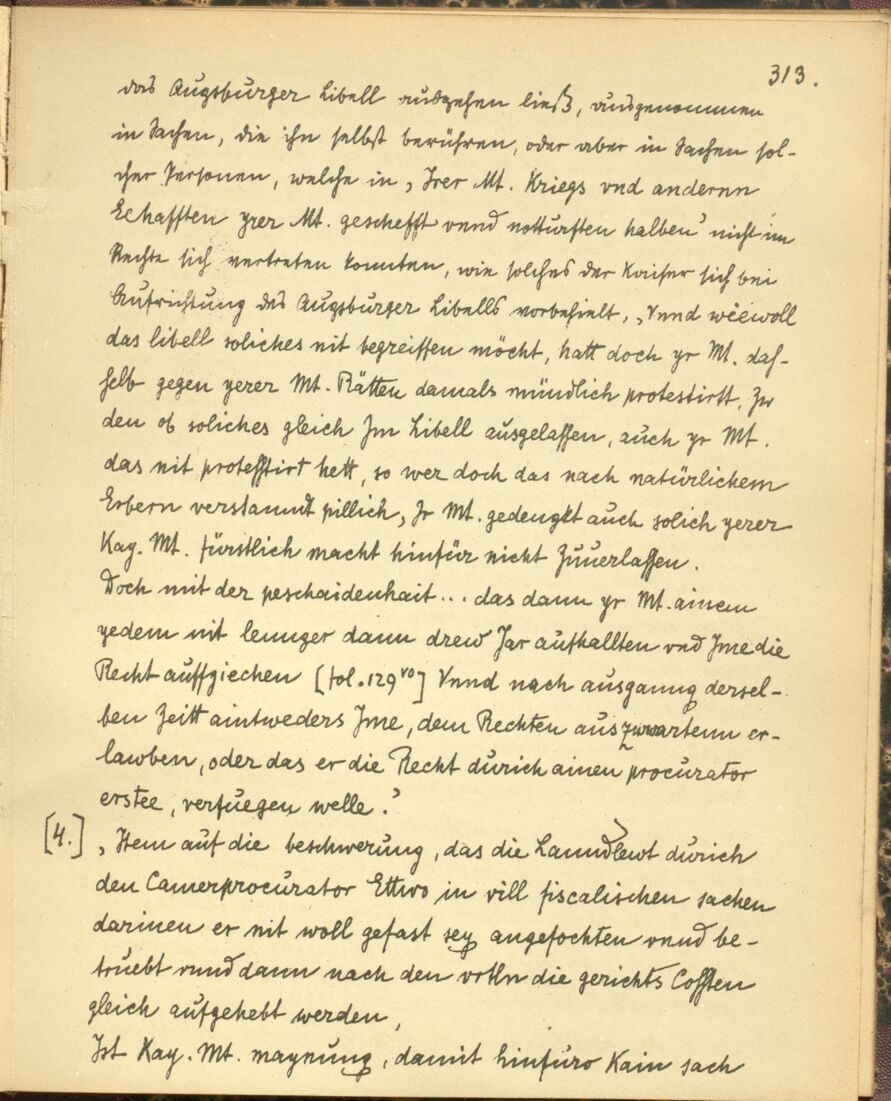 313.
das Augsburger Libell ausgehen ließ, ausgenommen
in Sachen, die ihn selbst berühren, oder aber in Sachen sol-
cher Personen, welche in „Irer Mt. Kriegs vnd anderen
Echafften yrer Mt. geschefft vnnd notturften halben" nicht im
Rechte sich vertreten konnten, wie solches der Kaiser sich bei
Aufrichtung des Augsburger Libells vorbehielt, „Vnnd wieewoll
das libell soliches nit begreiffen möcht, hatt doch yr Mt. das-
selb gegen yerer Mt. Rätten damals mündlich protestirtt, Zw
den ob soliches gleich Im Libell ausgelassen, auch yr Mt.
das nit protesstirt hett, so wer doch das nach natürlichem
Erbern verstanndt pillich, Ir Mt. gedengkt auch solich yerer
Kay. Mt. fürstlich macht hinfür nicht Zuuerlassen.
Doch mit der peschaidenhait... das dann yr Mt. ainem
yedem nit lennger dann drew Jar aufhallten vnd Ime die
Recht auffziechen [fol. 129vo] Vnnd nach ausganng dersel-
ben Zeitt aintweders Ime, dem Rechten auszuwartenn er-
lawben, oder das er die Recht durich ainen procurator
erstee, verfuegen welle."
[4.] „Item auf die beschwerung, das die Lanndlewt durich
den Camerprocurator Ettwo in vill fiscalischen sachen
darinen er nit woll gefast sey angefochten vnnd be-
truebt vnnd dann nach den vrtln die gerichts Cossten
gleich aufgehebt werden,
Ist Kay. Mt. maynung, damit hinfüro Kain sach